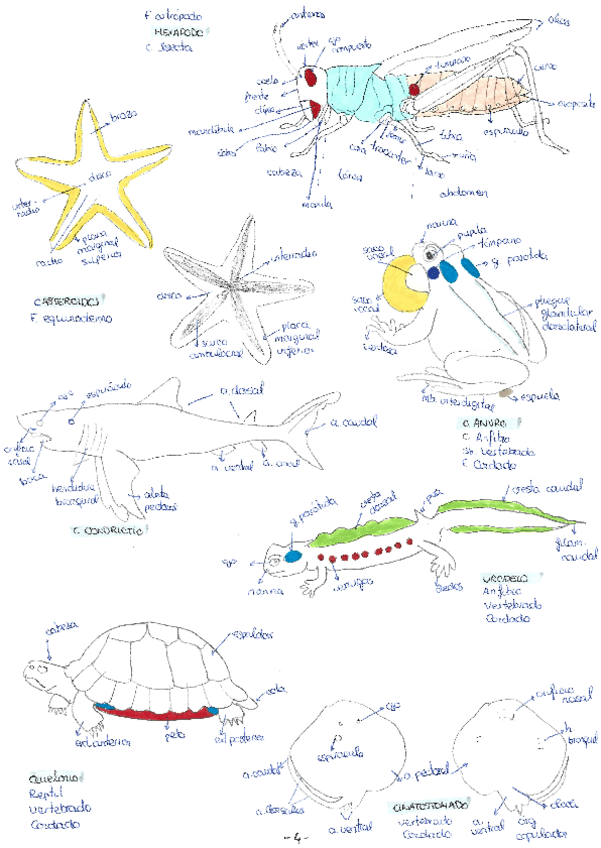 F. artrópodo
HEXÁPODO
C. Insecta
antenas
vertex
ojo
compuesto
alas
vuelo
frente
clípeo
mandíbula
labro
labio
cabeza
maxila
tórax
coxa
trocánter
fémur
tibia
uña
tarso
tímpano
cerco
ovopositor
espiráculo
abdomen
brazo
disco
inter-
radio
radio
placa
marginal
superior
ASTEROIDEO
F. equinodermo
interradio
disco
surco
ambulacral
placa
marginal
inferior
narina
pupila
tímpano
g. parótida
saco
vocal
saco
vocal
pliegue
glandular
dorsolateral
mb. interdigital
espuela
O. ANURO
C. Anfibio
sb. vertebrado
F. Cordado
ojo
espiráculo
a. dorsal
a. caudal
orificio
nasal
boca
hendidura
branquial
aleta
pectoral
a. ventral
a. anal
C. CONDRICTIO
g. parótida
cresta
dorsal
cresta caudal
ojo
narina
verrugas
dedos
filam.
caudal
URODELO
Anfibio
Vertebrado
Cordado
cabeza
espaldar
cola
ext. anterior
peto
ext. posterior
QUELONIO
Reptil
Vertebrado
Cordado
ojo
espiráculo
a. caudal
a. dorsales
a. ventral
a. pectoral
orificio
nasal
h.
branquial
cloaca
a.
ventral
org.
copulador
vertebrado
Cordado
- 4 -